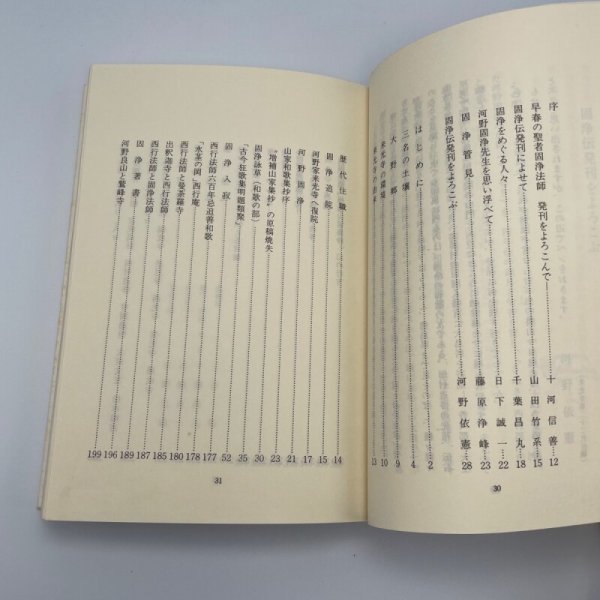 序 発刊をよろこんで 十河信善 12
早春の聖者固浄法師 山田竹系 15
固浄伝発刊によせて 千葉昌丸 18
固浄をめぐる人々 日下誠一 22
河野固浄先生を思い浮べて 藤原浄峰 23
固浄管見 河野依憲 28
固浄伝発刊をよろこぶ
はじめに 2
三名の土壌 4
大野郷 9
来光寺の環境 10
来光寺の由来 13
30
歴代住職 14
固浄逝院 15
河野家来光寺へ復院 17
河野固浄 21
山家和歌集抄序 23
“増補山家集抄”の原稿焼失 30
固浄詠草(和歌の部) 35
“古今狂歌集明題類聚” 52
固浄入寂 177
西行法師六百年忌追善和歌 178
“水茎の岡”西行庵 180
西行法師と曼荼羅寺 185
出釈迦寺と西行法師 187
西行法師と固浄法師 189
固浄著書 196
河野良山と鷲峰寺 199
31